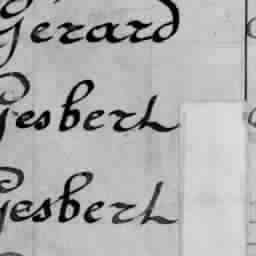 Gerard
Gesbert
Gesbert